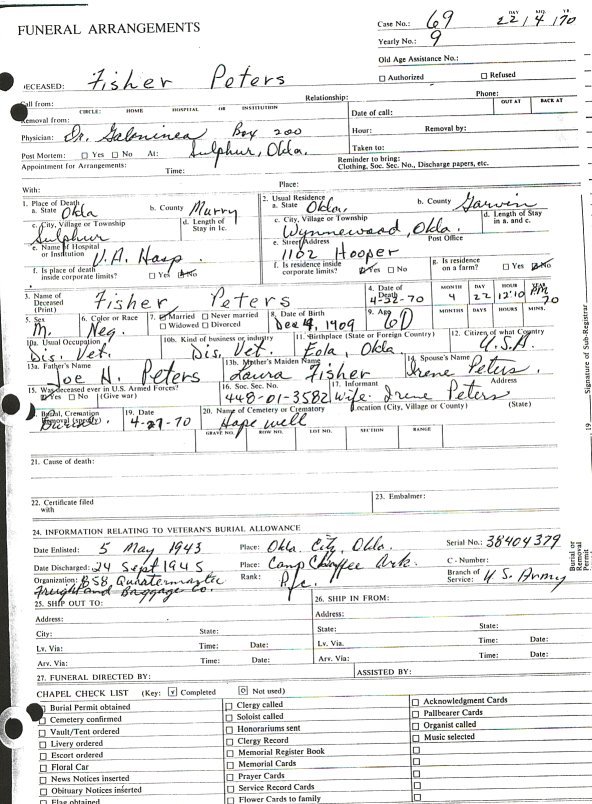 FUNERAL ARRANGEMENTS
Case No.: 69 DAY MO. YR. 22/4/70
Yearly No.: 9
Old Age Assistance No.:
Authorized Refused
DECEASED: Fisher Peters
Call from: Relationship: Phone:
CIRCLE: HOME HOSPITAL OR INSTITUTION OUT AT BACK AT
Removal from: Date of call:
Physician: Dr. Box 200 Hour: Removal by:
Sulphur, Okla. Taken to:
Post Mortem: Yes No At: Reminder to bring:
Appointment for Arrangements: Time: Clothing, Soc. Sec. No., Discharge papers, etc.
With: Place:
1. Place of Death 2. Usual Residence
a. State Okla b. County Murry a. State Okla. b. County Garvin
c. City, Village or Township Sulphur d. Length of Stay in 1c. c. City, Village or Township Wynnewood, Okla. d. Length of Stay in a. and c.
e. Name of Hospital or Institution V.A. Hosp. e. Street Address 1102 Hooper Post Office
f. Is place of death inside corporate limits? Yes No f. Is residence inside corporate limits? Yes No g. Is residence on a farm? Yes No
3. Name of Deceased (Print) Fisher Peters 4. Date of Death 4-22-70 MONTH 4 DAY 22 HOUR 12:10 AM YR 70
5. Sex M. 6. Color or Race Neg. 7. Married Never married Widowed Divorced 8. Date of Birth Dec 9, 1909 9. Age 60 MONTHS DAYS HOURS MINS.
10a. Usual Occupation Dis. Vet. 10b. Kind of business or industry Dis. Vet. 11. Birthplace (State or Foreign Country) Eola, Okla 12. Citizen of what Country U.S.A.
13a. Father's Name Joe H. Peters 13b. Mother's Maiden Name Laura Fisher 14. Spouse's Name Irene Peters.
15. Was deceased ever in U.S. Armed Forces? Yes No (Give war) 16. Soc. Sec. No. 448-01-3582 17. Informant Wife. Irene Peters Address
18. Burial, Cremation Removal (specify) Burial 19. Date 4-27-70 20. Name of Cemetery or Crematory Hopewell Location (City, Village or County) (State)
GRAVE NO. ROW NO. LOT NO. SECTION RANGE
21. Cause of death:
22. Certificate filed with 23. Embalmer:
24. INFORMATION RELATING TO VETERAN'S BURIAL ALLOWANCE
Date Enlisted: 5 May 1943 Place: Okla. City, Okla. Serial No.: 38404379
Date Discharged: 24 Sept 1945 Place: Camp Chaffee Ark. C - Number:
Organization: 858, Quartermaster Rank: Pfc. Branch of Service: U.S. Army
Freight and Baggage Co.
25. SHIP OUT TO: 26. SHIP IN FROM:
Address: Address:
City: State: State:
Lv. Via. Time: Date: Lv. Via. Time: Date:
Arv. Via: Time: Date: Arv. Via: Time: Date:
27. FUNERAL DIRECTED BY: ASSISTED BY:
CHAPEL CHECK LIST (Key: Completed Not used)
Burial Permit obtained Clergy called Acknowledgment Cards
Cemetery confirmed Soloist called Pallbearer Cards
Vault/Tent ordered Honorariums sent Organist called
Livery ordered Clergy Record Music selected
Escort ordered Memorial Register Book
Floral Car Memorial Cards
News Notices inserted Prayer Cards
Obituary Notices inserted Service Record Cards
Flag obtained Flower Cards to family
Signature of Sub-Registrar
19
Burial or Removal Permit